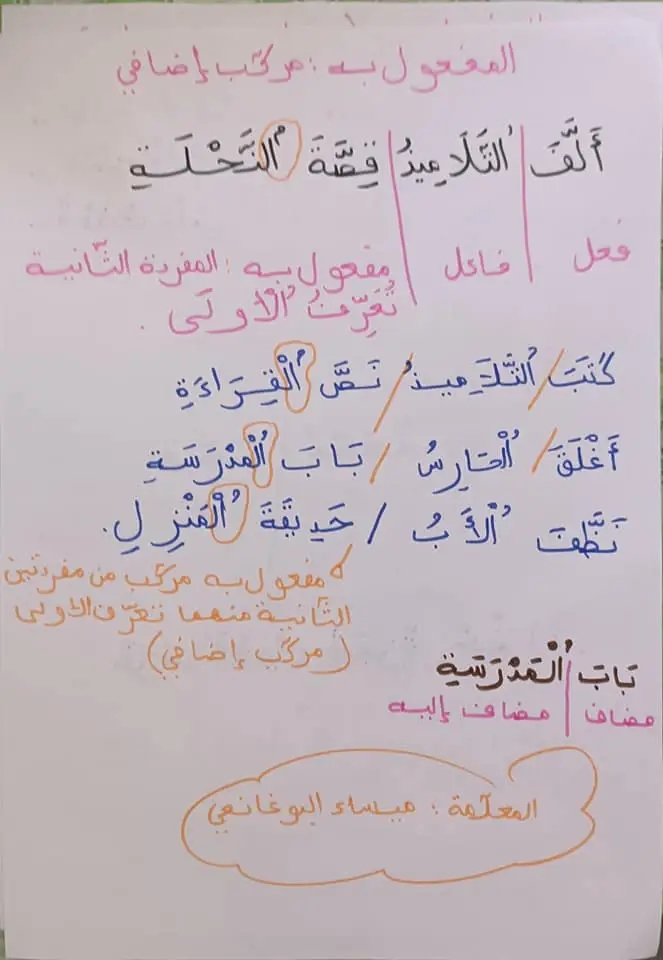 المفعول به : مركّب إضافي
أَلَّفَ التَّلَامِيذُ قِصَّةَ النَّحْلَةِ
فعل فاعل مفعول به : المفردة الثّانية
تُعَرِّفُ الْأولَى .
كَتَبَ / التَّلَامِيذُ / نَصَّ الْقِرَاءَةِ
أَغْلَقَ / الْحَارِسُ / بَابَ الْمَدْرَسَةِ
نَظَّفَ الْأَبُ / حَدِيقَةَ الْمَنْزِلِ .
مفعول به مركّب من مفردتين
الثّانية منهما تعرّف الأولى
(مركّب إضافي)
بَابَ الْمَدْرَسَةِ
مضاف مضاف إليه
المعلّمة : ميساء البوغانمي